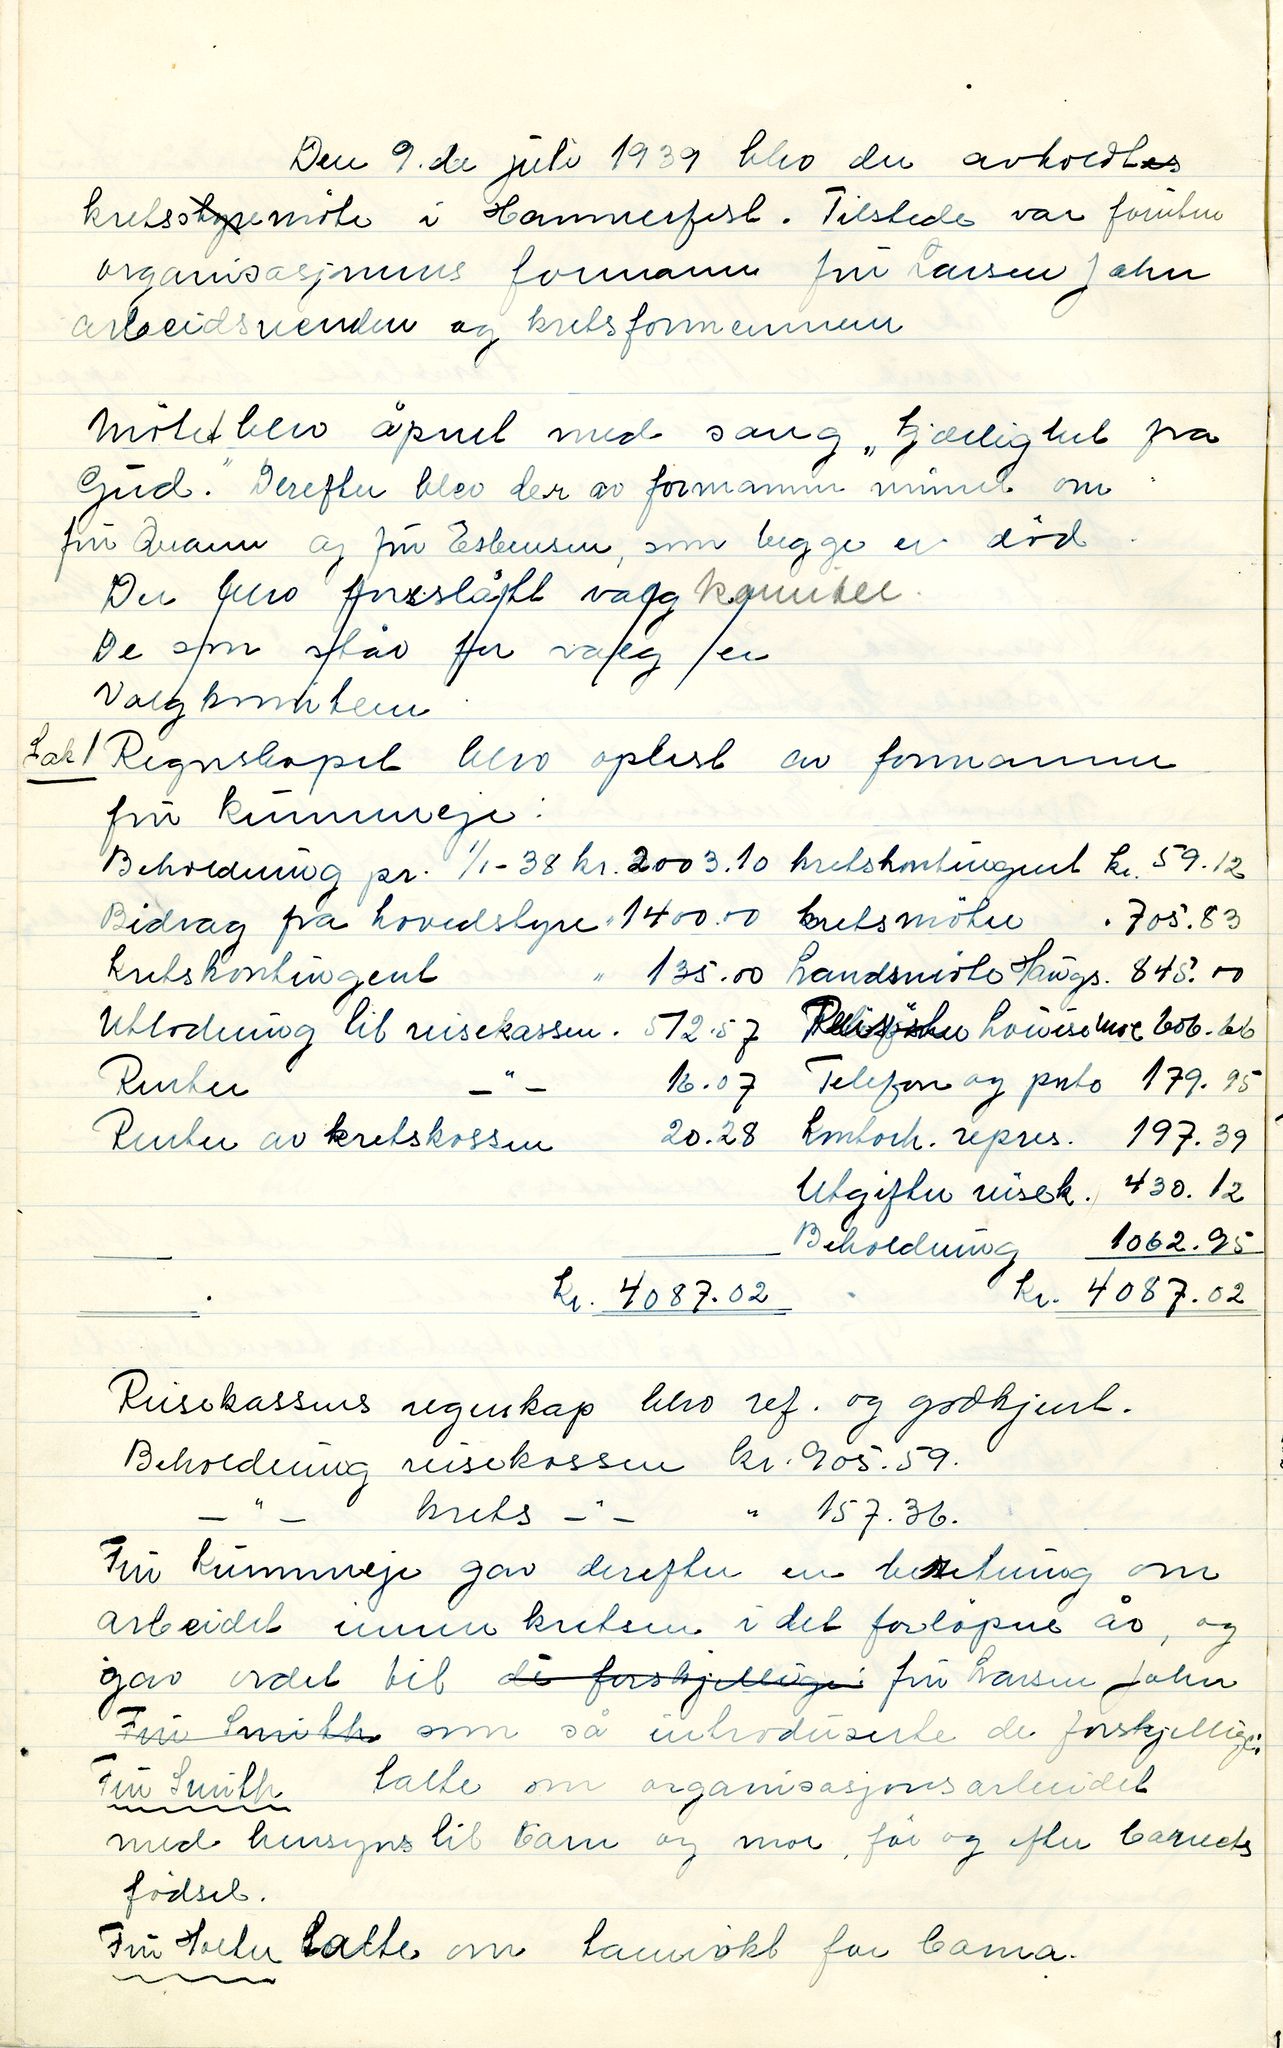 Den 9. de juli 1939 blev der avholdt
kretsmöte i Hammerfest. Tilstede var foruten
organisasjonens formann fru Larsen Jahn
arbeidsnevnden og kretsformennene
Mötet blev åpnet med sang „Kjærlighet fra
Gud." Derefter blev der av formannen minnet om
fru Qvam og fru Esbensen, som begge er död.
Der blev foreslått valgkomitee.
De som står for valg er
Valgkomiteen
Sak 1 Regnskapet blev oplest av formannen
fru Kummeneje:
Beholdning pr. 1/1-38 kr. 2003.10 kretskontingent kr. 59.12
Bidrag fra hovedstyre " 1400.00 kretsmöter . 705.83
Kretskontingent " 135.00 Landsmöte Haugs. 845.00
Utlodning til reisekassen . 512.57 Louisemoe 606.66
Renter — " — 16.07 Telefon og porto 179.95
Renter av kretskassen 20.28 Kontorh. repres. 197.39
Utgifter reisek. 430.12
Beholdning 1062.95
Kr. 4087.02 Kr. 4087.02
Reisekassens regnskap blev ref. og godkjent.
Beholdning reisekassen kr. 905.59.
— " — krets — " — " 157.36.
Fru Kummeneje gav derefter en beretning om
arbeidet innen kretsen i det forlöpne år, og
gav ordet til de forskjellige: fru Larsen Jahn
Fru Smith som så introduserte de forskjellige:
Fru Smith talte om organisasjonsarbeidet
med hensyns til barn og mor, för og efter barnets
födsel.
Fru talte om tannrökt for barna.